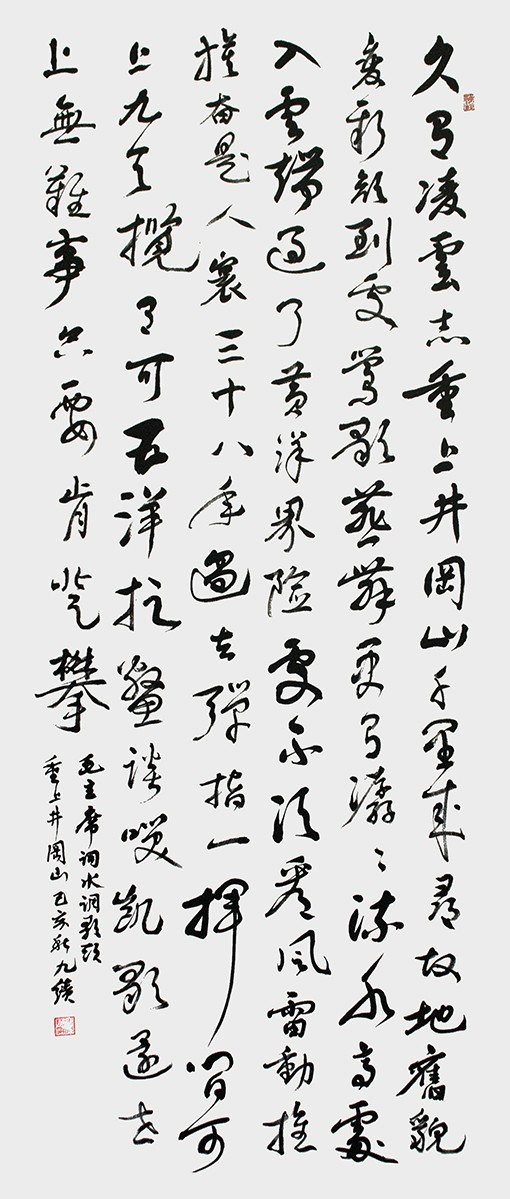 久有凌雲志重上井岡山千里來尋故地舊貌
變新顏到處鶯歌燕舞更有潺々流水高處
入雲端過了黄洋界險處不須看風雷動旌
旗奮是人寰三十八年過去彈指一揮間可
上九天攬月可五洋捉鱉談笑凱歌還世
上無難事只要肯登攀
毛主席詞水調歌頭
重上井岡山己亥秋九績